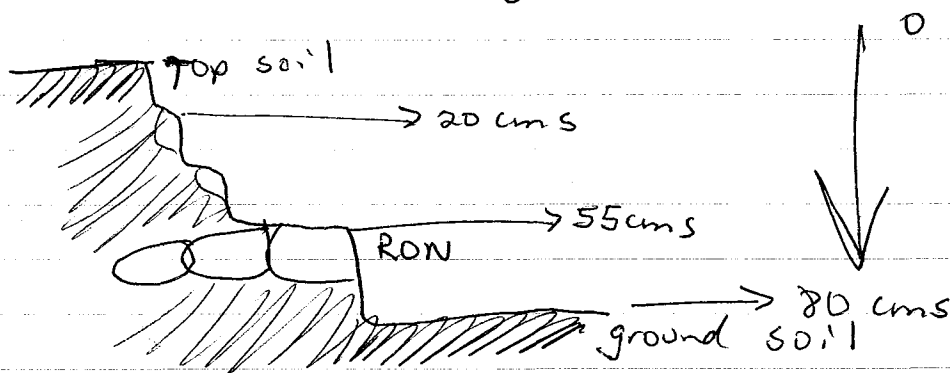 0
Top soil
20 cms
55 cms
RON
80 cms
ground soil